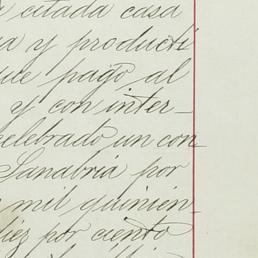 citada casa
a y producti
que pagó al
y con inter-
celebrado un con-
Sanabria por
mil quinien-
diez por ciento